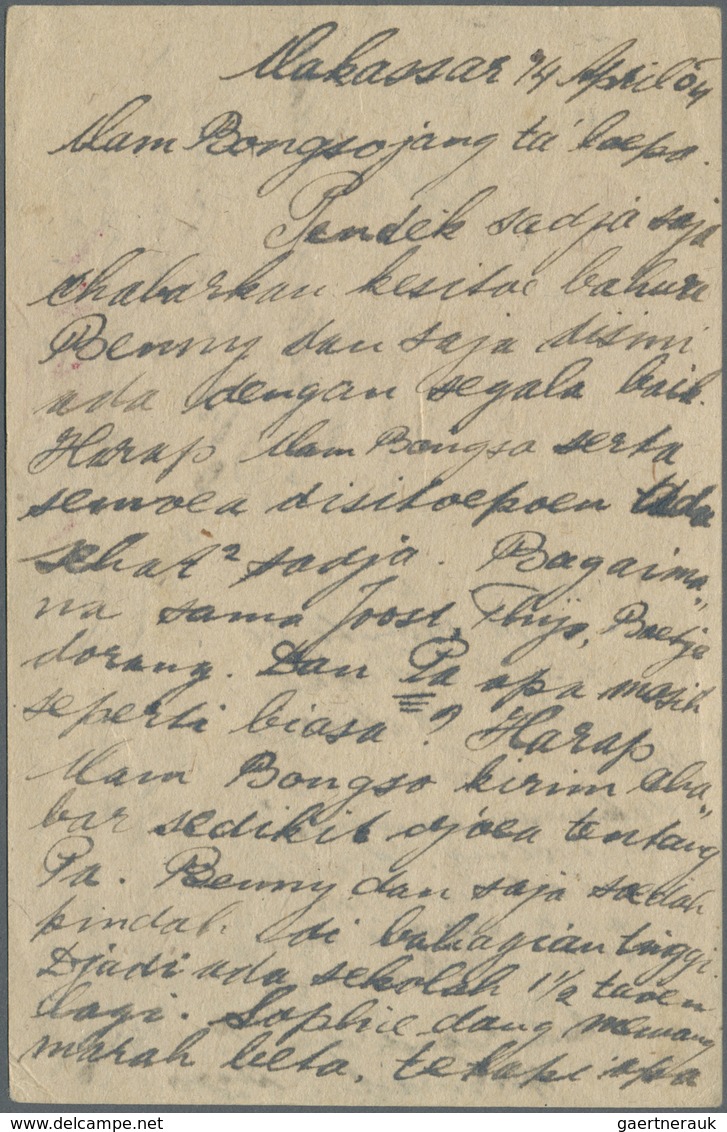 Makassar 9/4 April 04
Mam Bongso jang ta' loepa.
Pendek sadja saja
chabarkan kesitoe bahwa
Benny dan saja disini
ada dengan segala baik.
Harap Mam Bongso serta
semoea disitoepoen ada
sehat² sadja. Bagaima„
na sama Joost, Thijs, Boetje
dorang. Dan Pa apa masih
seperti biasa? Harap
Mam Bongso kirim cha„
bar sedikit djoea tentang
Pa. Benny dan saja soedah
pindah di bahagian tinggi.
Djadi ada sekolah 1½ taoen
lagi. Sophie dang memang
marah beta, tetapi apa
gaertnerauk @ delcampe